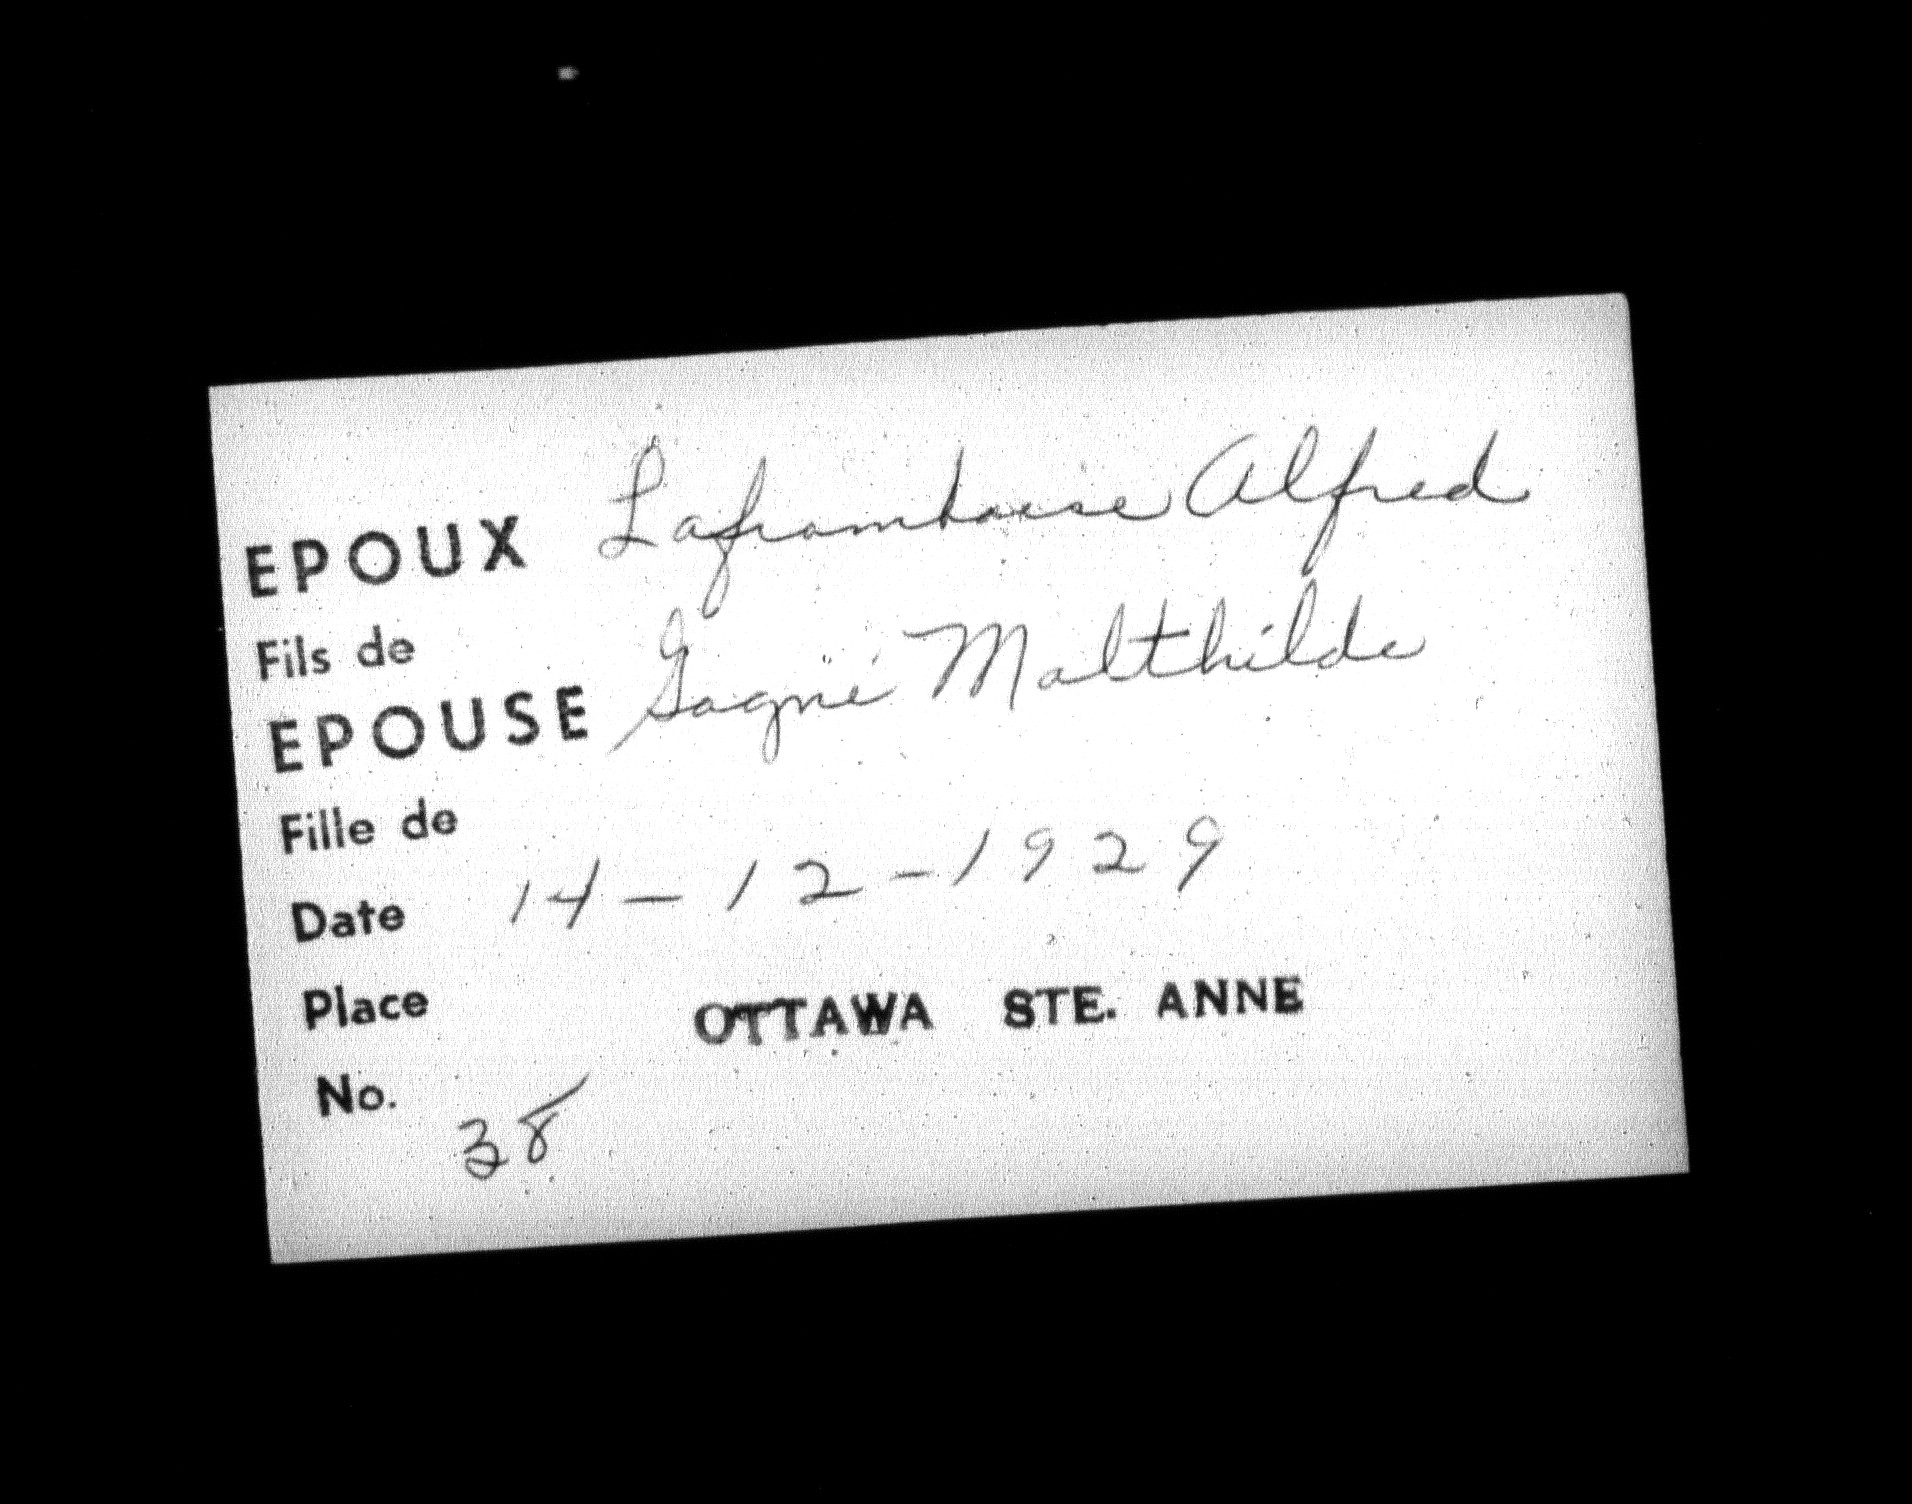 EPOUX Laframboise Alfred
Fils de
EPOUSE Gagné Malthilde
Fille de
Date 14-12-1929
Place OTTAWA STE. ANNE
No. 38